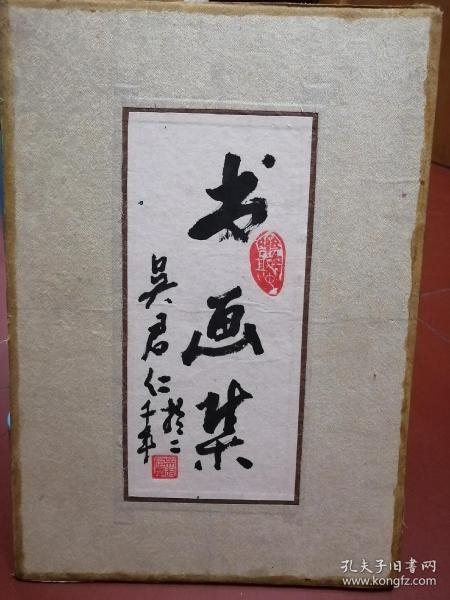 书画集
吴君仁于二
千年
孔夫子旧书网
www.kongfz.com